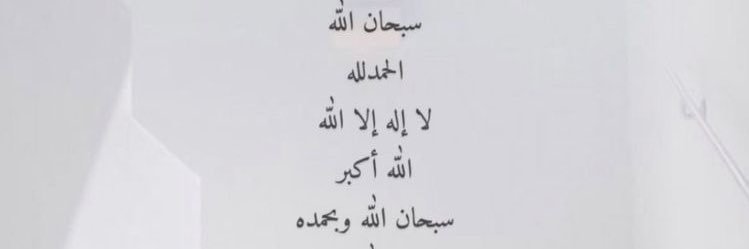 سبحان الله
الحمدلله
لا إله إلا الله
الله أكبر
سبحان الله وبحمده